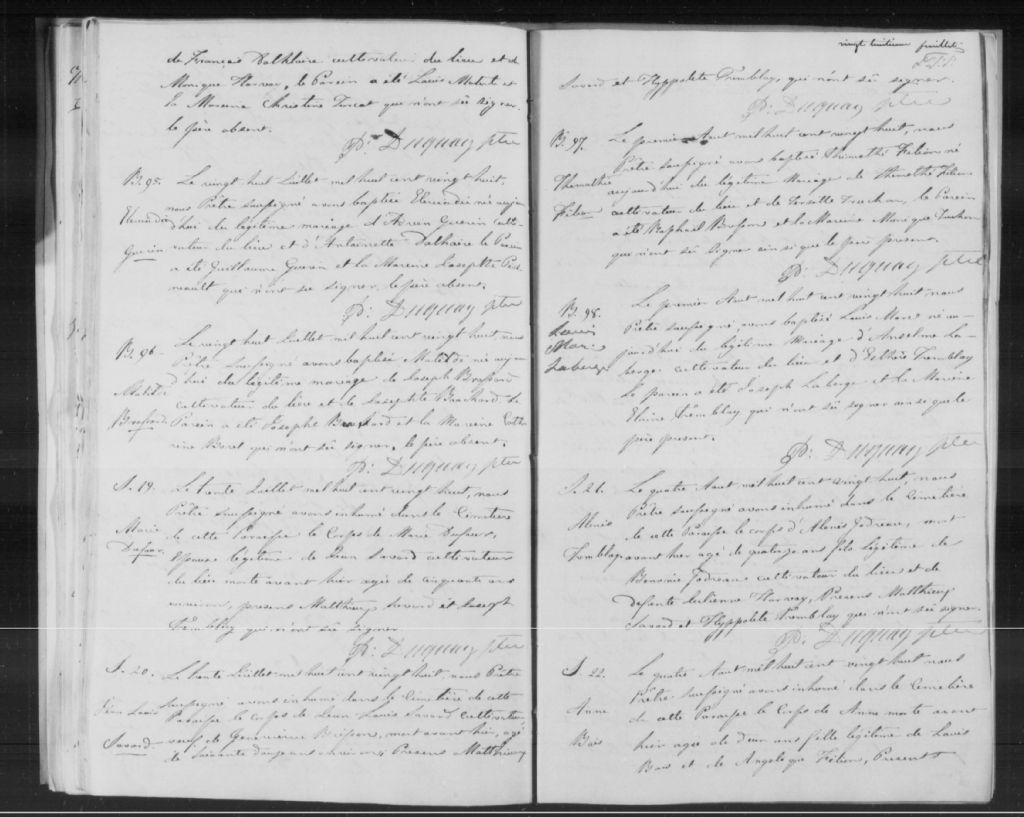 de Francois Dalhaire cultivateur du lieu et de
Monique Harvay, le Parein a été Louis Malet et
la Mareine Christine Turcot que n'ont sû signer.
le père absent.
Pr: Duguay ptre
B. 95. Le vingt huit Juillet mil huit cent vingt huit,
nous Prêtre sousigné avons baptisé née aujour
d'hui du légitime mariage d'Urean Guerin culti-
Guerin vateur du lieu et d'Antoinette Dalhaire le Parein
a été Guillaume Guerin et la Mareine Josephte
qui n'ont sû signer, le père absent.
Pr: Duguay ptre
B. 96. Le vingt huit Juillet mil huit cent vingt huit, nous
Prêtre sousigné avons baptisé Matilde née aujour
Matilde d'hui du légitime mariage de Joseph Brassard
cultivateur du lieu et de Josephte Bouchard le
Brassard Parein a été Josephe Brassard et la Mareine Cathe
rine Boret qui n'ont sû signer, le père absent.
Pr: Duguay ptre
S. 19. Le trente Juillet mil huit cent vingt huit, nous
Prêtre sousigné avons inhumé dans le Cemetière
Marie de cette Paroisse le Corps de Marie Dufour,
Dufour Epouse légitime de Jean Savard cultivateur
du lieu morte avant hier agée de cinquante ans
environ, presens Matthieu Savard et Joseph
Tremblay qui n'ont sû signer
Pr: Duguay ptre
S. 20. Le trente Juillet mil huit cent vingt huit, nous Prêtre
Jean Louis sousigné avons inhumé dans le Cemetière de cette
Paroisse le corps de Jean Louis Savard cultivateur
veuf de Genevieve Brisson, mort avant hier, agé
Savard de soixante ans environ, Presens Matthieu
vingt huitieme feuillet
Savard et Hyppolite Tremblay, qui n'ont sû signer.
Pr: Duguay ptre
B. 97. Le premier Aout mil huit cent vingt huit, nous
Prêtre sousigné avons baptisé Thimothé Filion né
Themothé aujourd'hui du légitime Mariage de Themothé Filion
Filion cultivateur du lieu et de Josette Truchon, le Parein
a été Raphael Brisson et la Mareine Monique Truchon
qui n'ont sû signer ainsi que le père present.
Pr: Duguay ptre
B. 98. Le premier Aout mil huit cent vingt huit nous
Louis Prêtre sousigné, avons baptisé Louis Marc né au
Marc jourd'hui du légitime Mariage d'Anselme La-
Laberge berge cultivateur du lieu et d'Esther Tremblay
le parein a été Joseph Laberge et la Mareine
Elaine Tremblay qui n'ont sû signer ainsi que le
père present.
Pr: Duguay ptre
S. 21. Le quatre Aout mil huit cent vingt huit, nous
Alexis Prêtre sousigné avons inhumé dans le Cemetière
de cette Paroisse le corps d'Alexis Jodreau, mort
Tremblay avant hier agé de quatorze ans fils légitime de
Jodreau cultivateur du lieu et de
defunte Julienne Harvay, Presens Matthieu
Savard et Hyppolite Tremblay qui n'ont sû signer.
Pr: Duguay ptre
S. 22. Le quatre Aout mil huit cent vingt huit nous
Prêtre sousigné avons inhumé dans le Cemetière
Anne de cette Paroisse le Corps de Anne morte avant
Bois hier agée de deux ans fille légitime de Louis
Bois et de Angelique Filion, Presents